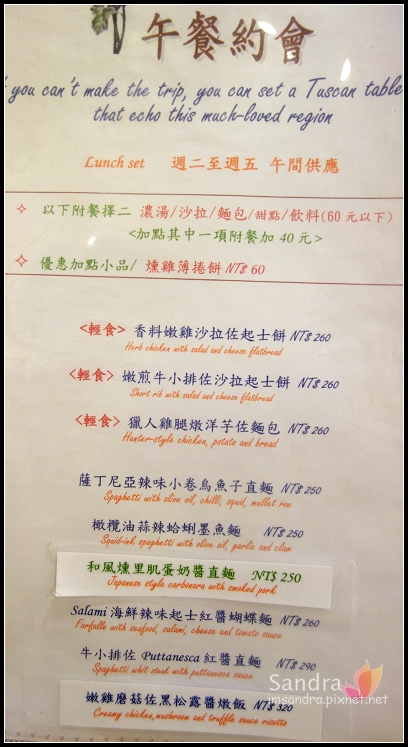 午餐約會
you can't make the trip, you can set a Tuscan table
that echo this much-loved region
Lunch set 週二至週五 午間供應
✧ 以下附餐擇二 濃湯/沙拉/麵包/甜點/飲料(60元以下)
<加點其中一項附餐加 40元>
✧ 優惠加點小品/ 燻雞薄捲餅 NT$ 60
<輕食> 香料嫩雞沙拉佐起士餅 NT$ 260
Herb chicken with salad and cheese flatbread
<輕食> 嫩煎牛小排佐沙拉起士餅 NT$ 260
Short rib with salad and cheese flatbread
<輕食> 獵人雞腿燉洋芋佐麵包 NT$ 260
Hunter-style chicken, potato and bread
薩丁尼亞辣味小卷烏魚子直麵 NT$ 250
Spaghetti with olive oil, chilli, squid, mullet roe
橄欖油蒜辣蛤蜊墨魚麵 NT$ 250
Squid-ink spaghetti with olive oil, garlic and clam
和風燻里肌蛋奶醬直麵 NT$ 250
Japanese style carbonara with smoked pork
Salami 海鮮辣味起士紅醬蝴蝶麵 NT$ 260
Farfalle with seafood, salami, cheese and tomato sauce
牛小排佐 Puttanesca 紅醬直麵 NT$ 290
Spaghetti whit steak with puttanesca sauce
嫩雞磨菇佐黑松露醬燉飯 NT$ 320
Creamy chicken, mushroom and truffle sauce risotto
Sandra
jmsandra.pixnet.net